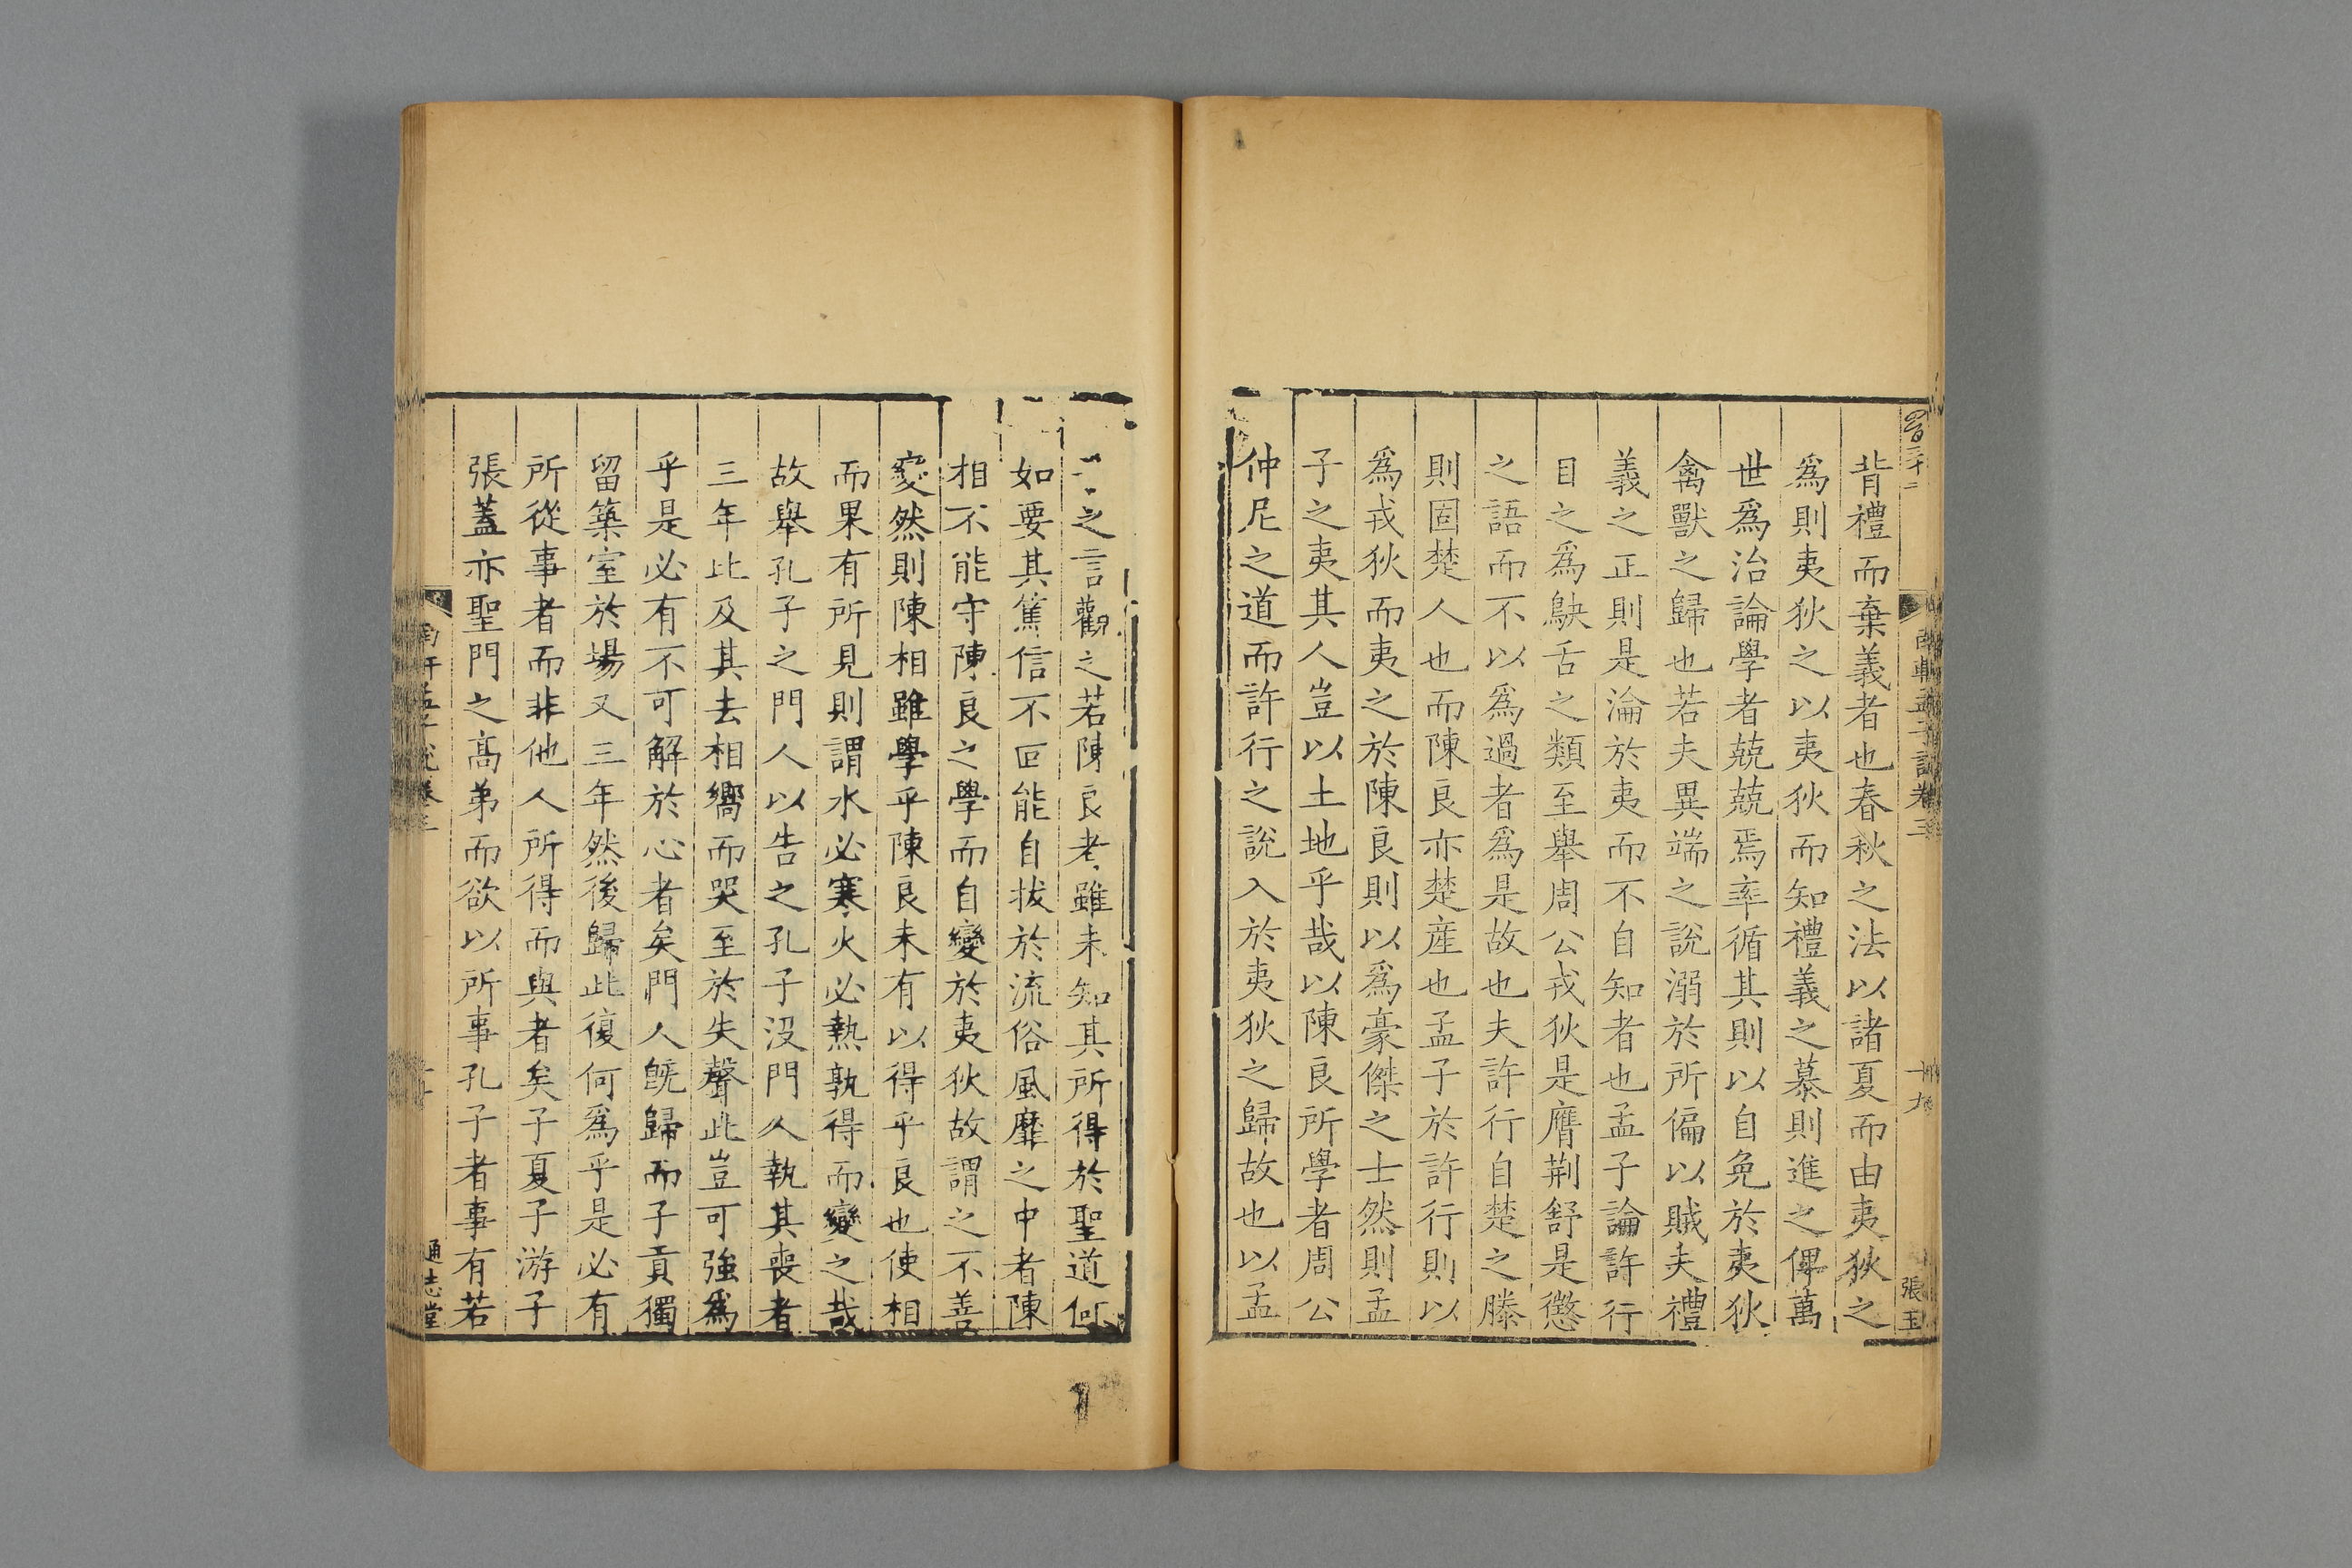 背禮而棄義者也春秋之法以諸夏而由夷狄之
爲則夷狄之以夷狄而知禮義之慕則進之俾萬
世爲治論學者兢兢焉率循其則以自免於夷狄
禽獸之歸也若夫異端之說溺於所偏以賊夫禮
義之正則是淪於夷而不自知者也孟子論許行
目之爲鴃舌之類至舉周公戎狄是膺荆舒是懲
之語而不以爲過者爲是故也夫許行自楚之滕
則固楚人也而陳良亦楚産也孟子於許行則以
爲戎狄而夷之於陳良則以爲豪傑之士然則孟
子之夷其人豈以土地乎哉以陳良所學者周公
仲尼之道而許行之說入於夷狄之歸故也以孟
之言觀之若陳良者雖未知其所得於聖道何
如要其篤信不回能自拔於流俗風靡之中者陳
相不能守陳良之學而自變於夷狄故謂之不善
變然則陳相雖學乎陳良未有以得乎良也使相
而果有所見則謂水必寒火必熱孰得而變之哉
故舉孔子之門人以告之孔子沒門人執其喪者
三年比及其去相嚮而哭至於失聲此豈可強爲
乎是必有不可解於心者矣門人旣歸而子貢獨
留築室於場又三年然後歸此復何爲乎是必有
所從事者而非他人所得而與者矣子夏子游子
張蓋亦聖門之高弟而欲以所事孔子者事有若
南軒孟子說卷三
十九
張玉
通志堂